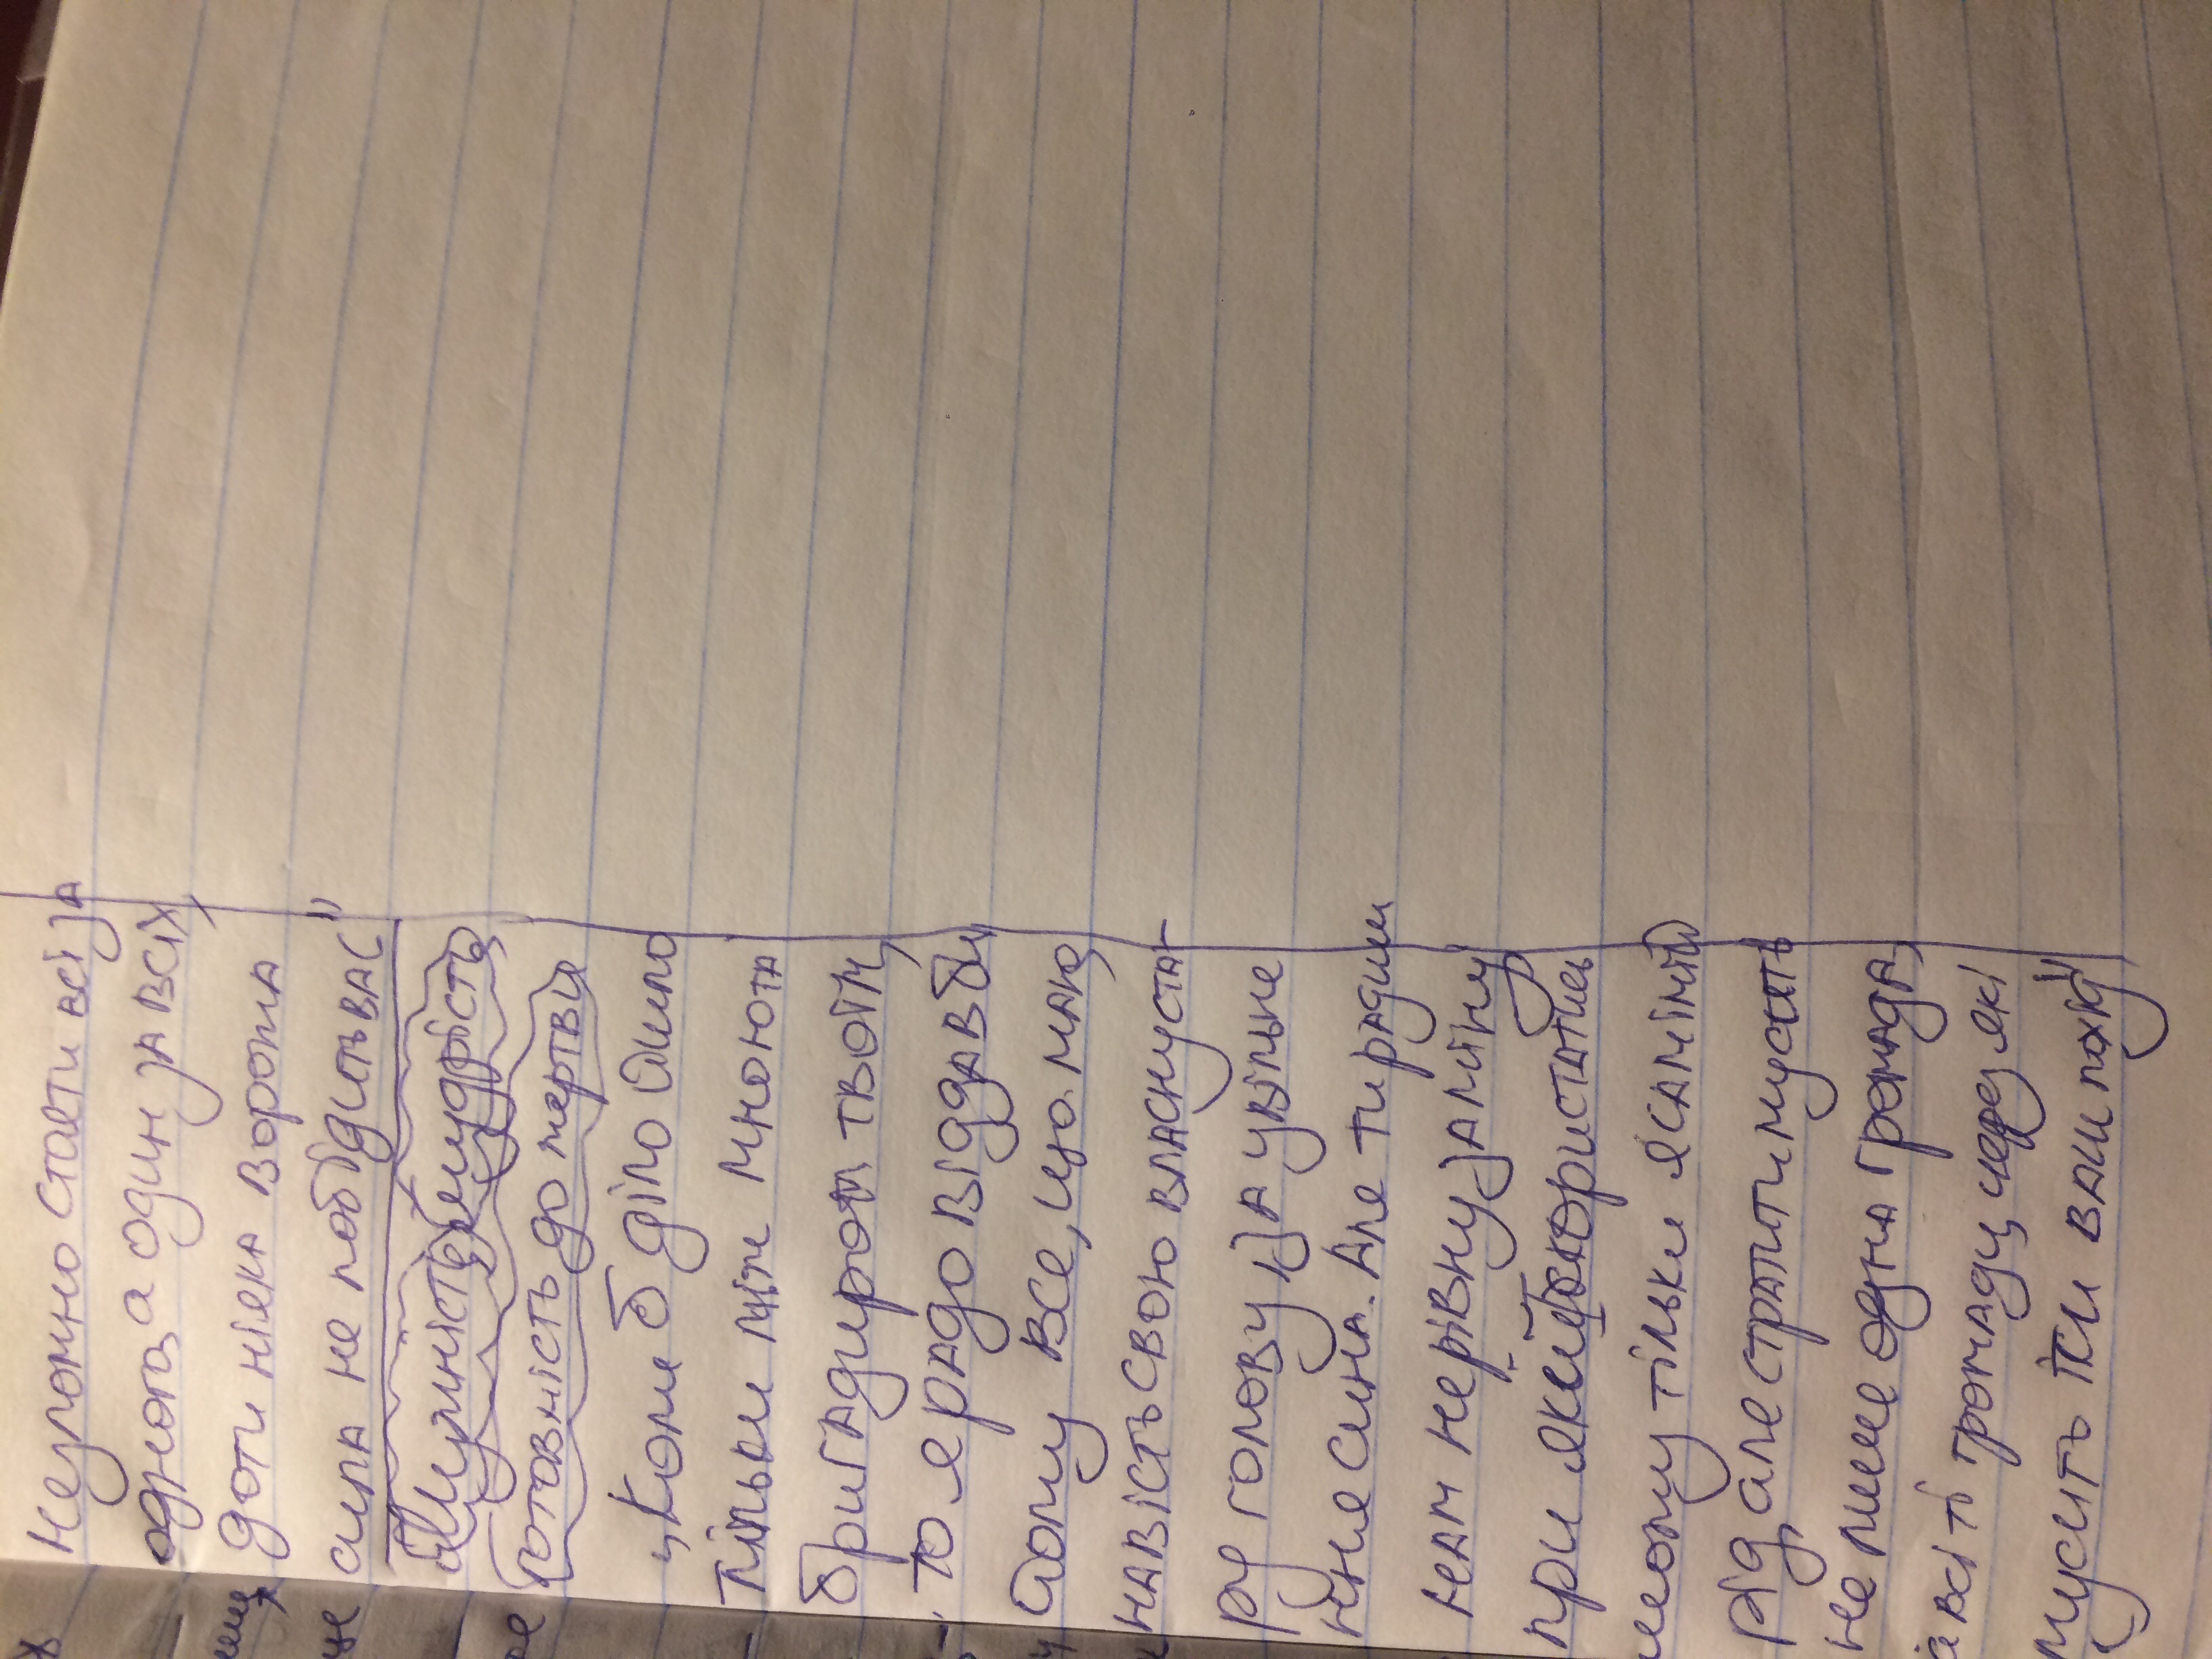 неуломно стаєти всі за
одного, а один за всіх,
доти ніяка ворожа
сила не побідить вас"
Мужність, мудрість,
готовність до жертви
„Коли б діло йшло
тільки між мною та
бригадиром твоїм,
то я радо віддав би
йому все, що маю,
навіть свою власну ста-
ру голову за увільне-
ння сина. Але ти радиш
нам нерівну заміну
при якій скористались
тільки я самі мій
рід, але стратити мусить
не лише одна громада,
а всі ті громади, через які
мусить іти ваш похід"